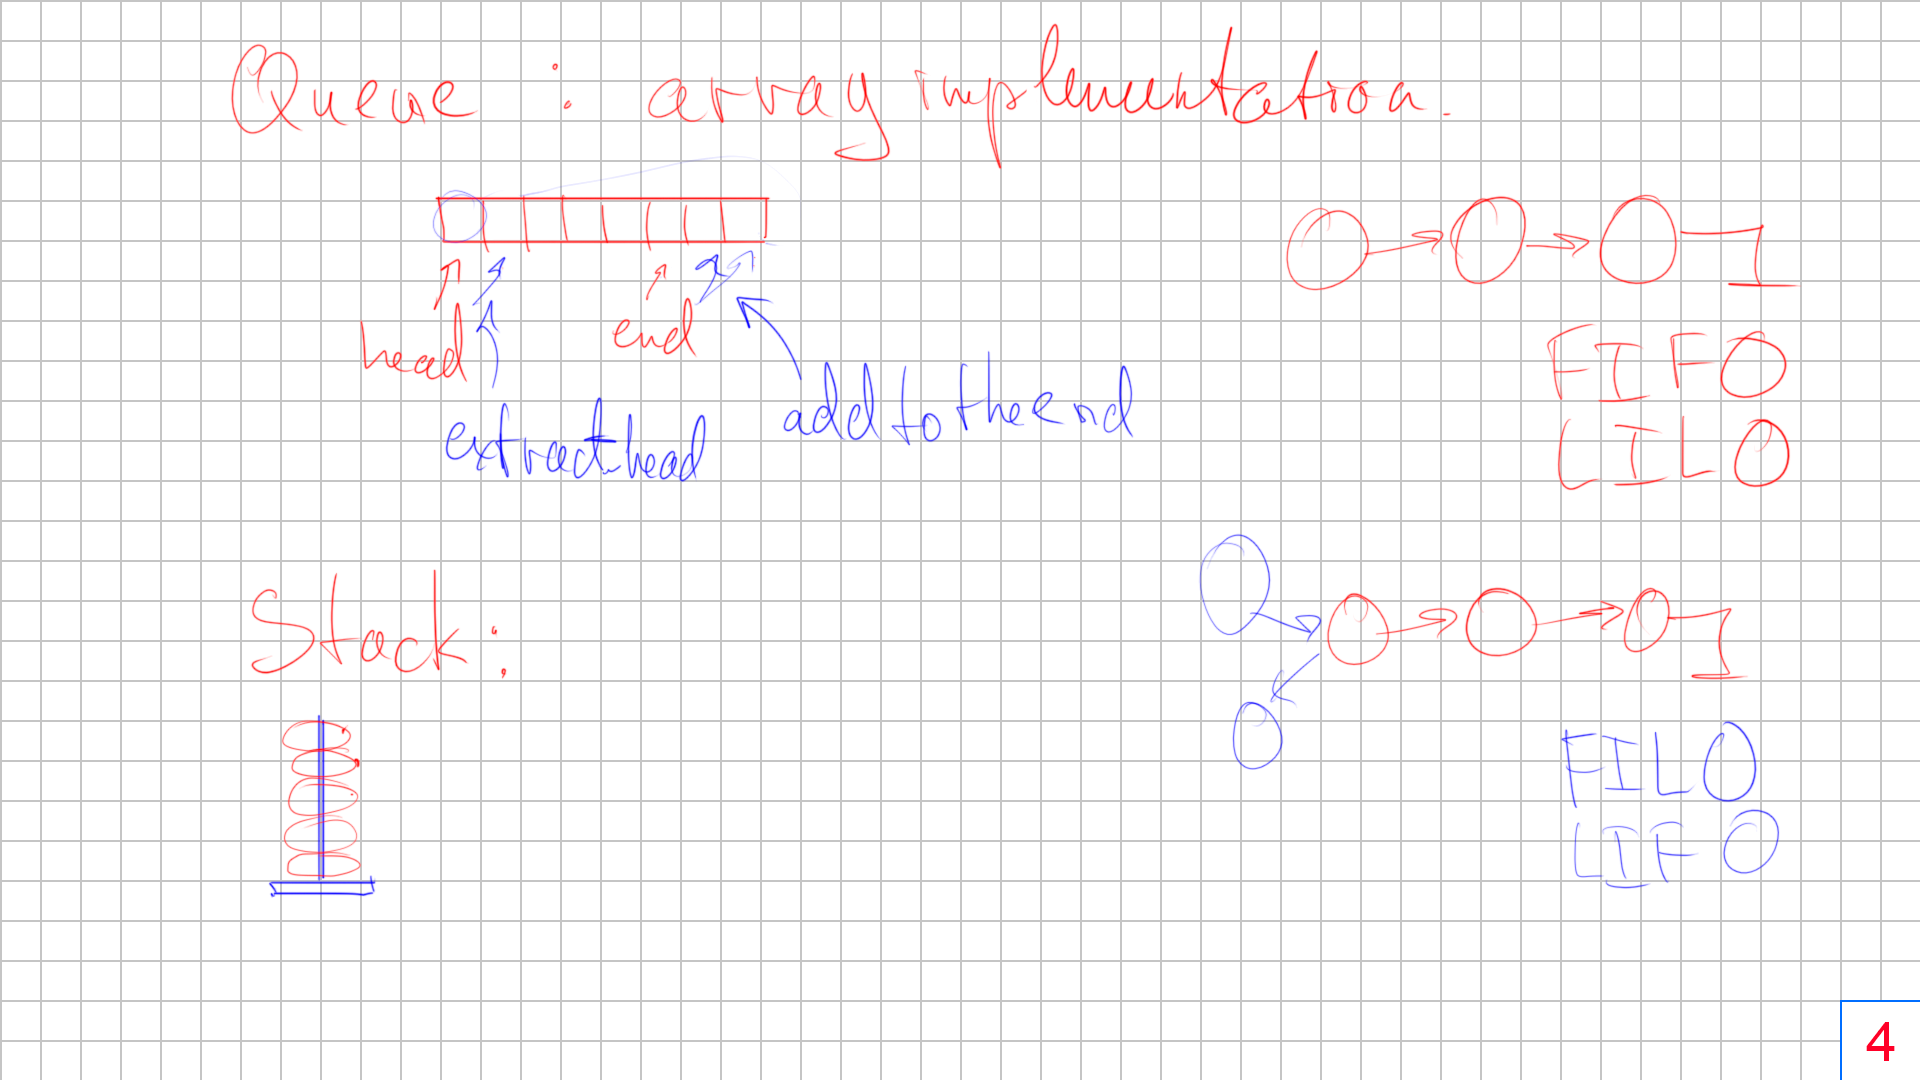 Queue : array implementation.
head
end
extract head
add to the end
FIFO
LILO
Stack :
FILO
LIFO
4